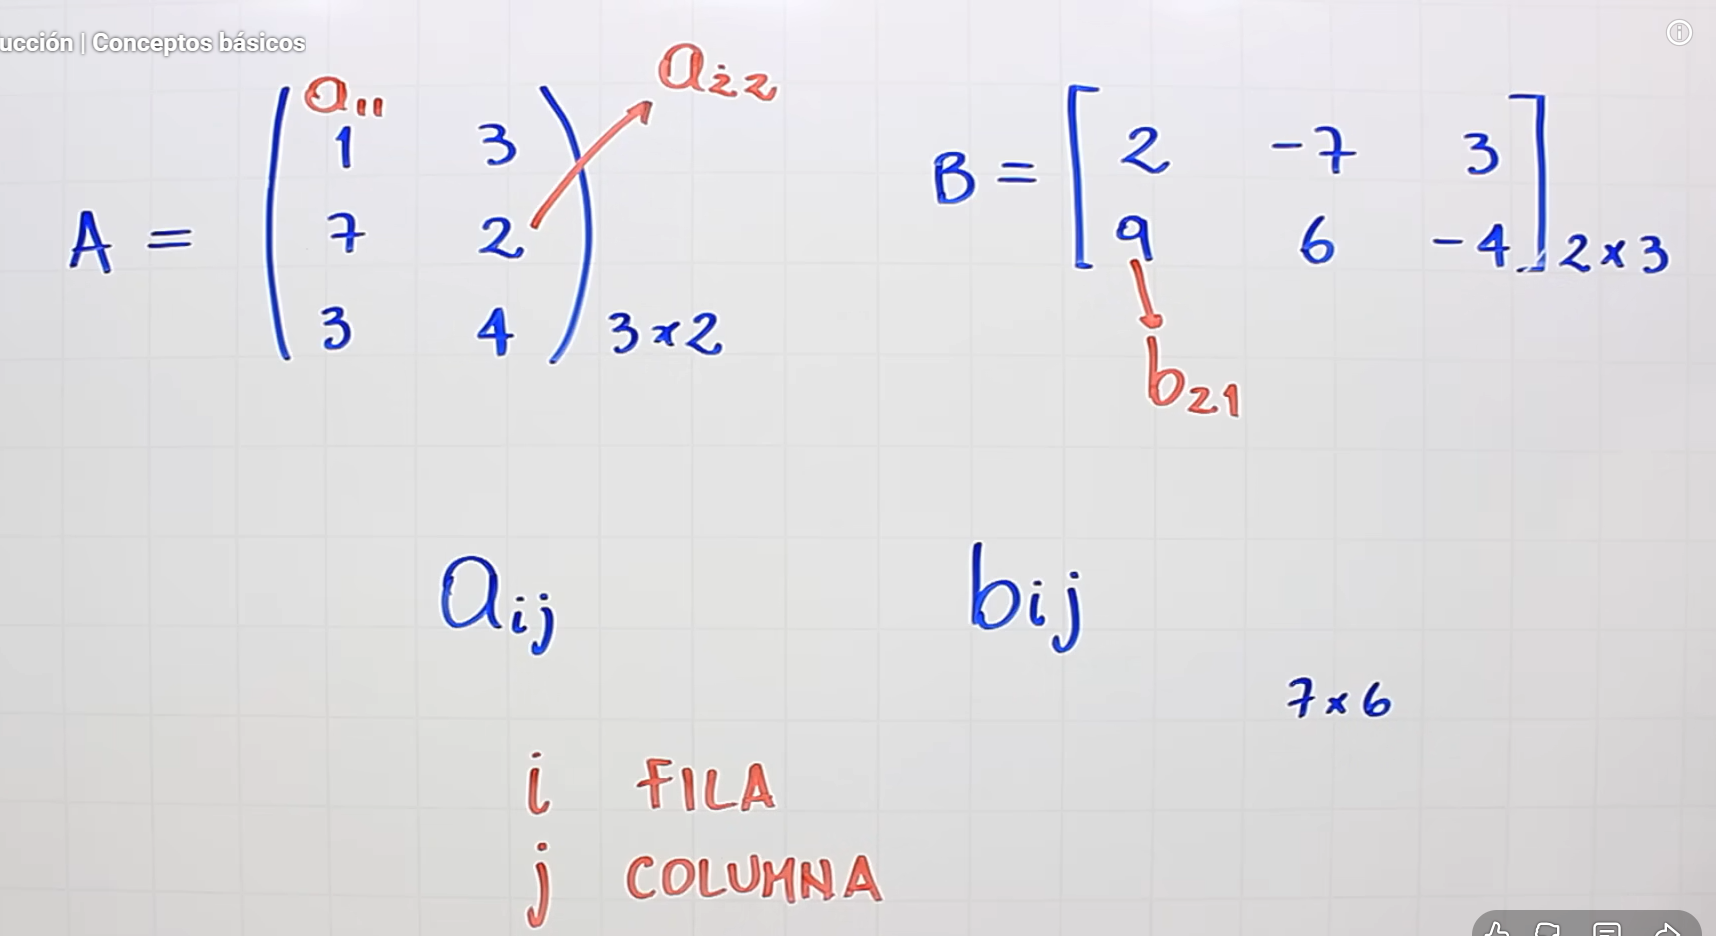 ucción | Conceptos básicos
a₁₁
a₂₂
A = ( 1 3
7 2
3 4 ) 3×2
B = [ 2 -7 3
9 6 -4 ] 2×3
b₂₁
aᵢⱼ bᵢⱼ
7×6
i FILA
j COLUMNA